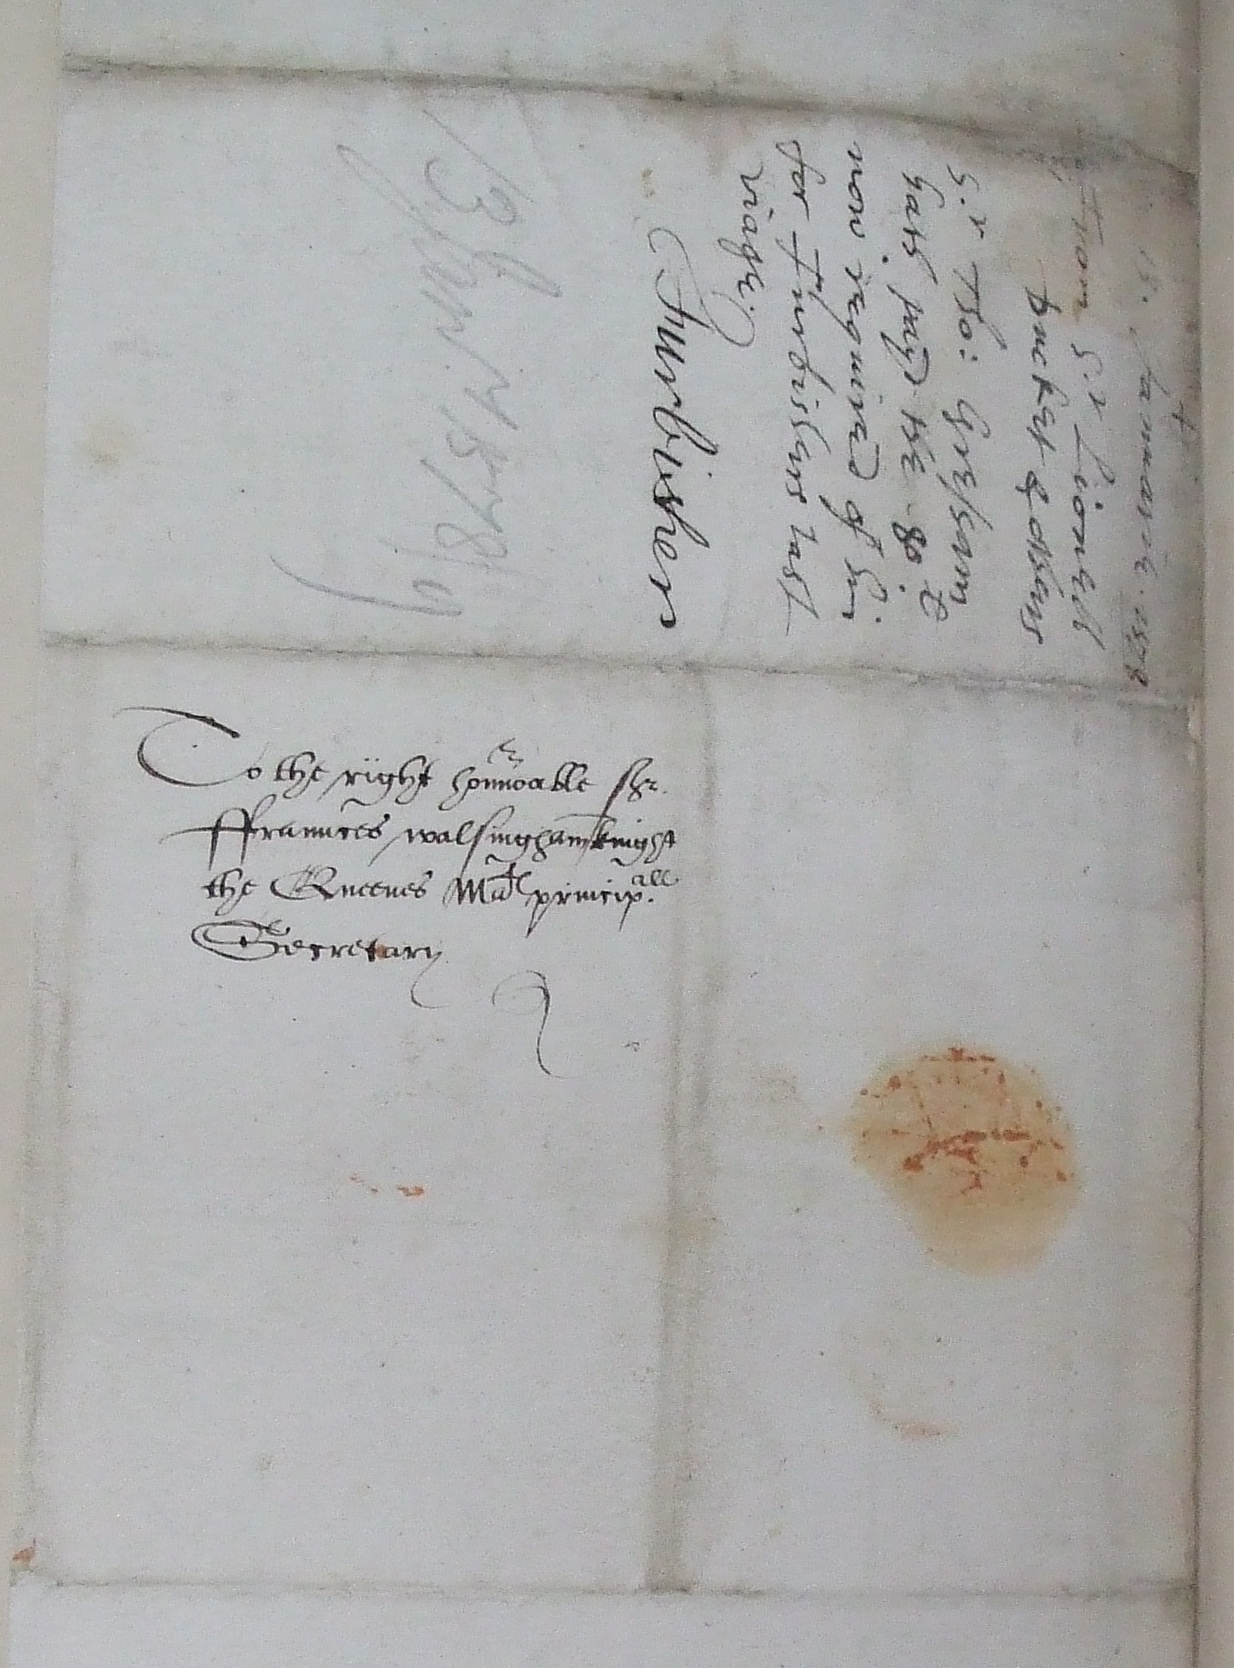 +
15. Januarie. 1578
From S.r Lionell
Ducket & others
S.r Tho: Gressam
hath payd the 80 £
now required of him
for Furbishers last
viage.
Furbisher
13 Jan.y 1578/9
To the right honnorable Sr.
Ffraunces Walsingham knight
the Queenes Matis princip.all
Secretary